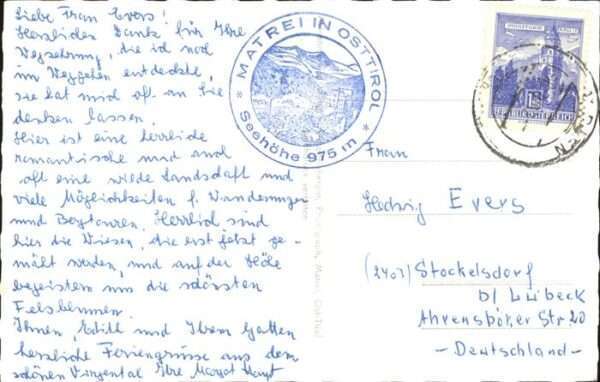 Liebe Frau Evers!
Herzlichen Dank für Ihre
Wegzehrung, die ich noch
im Weggehen entdeckte,
sie hat mich oft an Sie
denken lassen.
Hier ist eine herrliche
romantische und auch
oft eine wilde Landschaft und
viele Möglichkeiten f. Wanderungen
und Bergtouren. Herrlich sind
hier die Wiesen, die erst jetzt ge-
mäht werden, und auf der Höhe
begeistern uns die schönsten
Felsblumen.
Ihnen, Edith und Ihrem Gatten
herzliche Feriengrüsse aus dem
schönen Virgental Ihre Margot
* MATREI IN OSTTIROL *
Seehöhe 975 m
REPUBLIK ÖSTERREICH
Frau
Hedwig Evers
(2407) Stockelsdorf
b/ Lübeck
Ahrensböker Str. 20
- Deutschland -